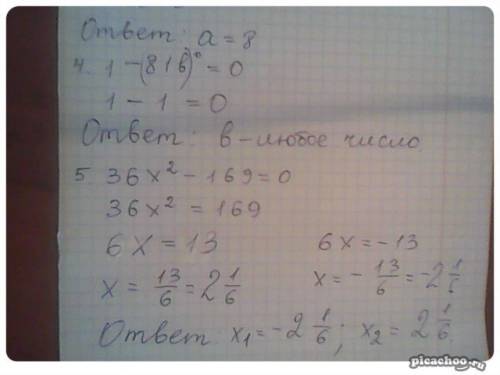 Ответ: a = 8
4. 1 - (81в)⁰ = 0
1 - 1 = 0
Ответ: в - любое число
5. 36x² - 169 = 0
36x² = 169
6x = 13 6x = -13
x = 13/6 = 2 1/6 x = - 13/6 = -2 1/6
Ответ x₁ = -2 1/6; x₂ = 2 1/6.
picachoo.ru